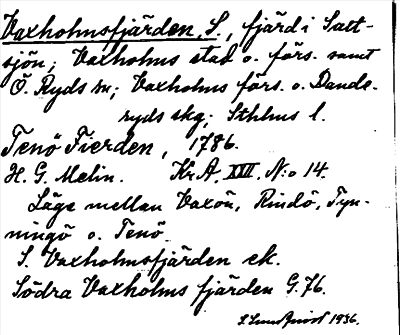 Vaxholmsfjärden, S., fjärd i Salt-
sjön; Vaxholms stad o. förs. samt
Ö. Ryds sn; Vaxholms förs. o. Dande-
ryds skg; Sthlms l.
Tenö Fierden, 1786.
H. G. Melin. Kr A, XVII, N:o 14.
Läge mellan Vaxön, Rindö, Tyn-
ningö o. Tenö
S. Vaxholmsfjärden ek.
Södra Vaxholms fjärden G. 76.
1936.